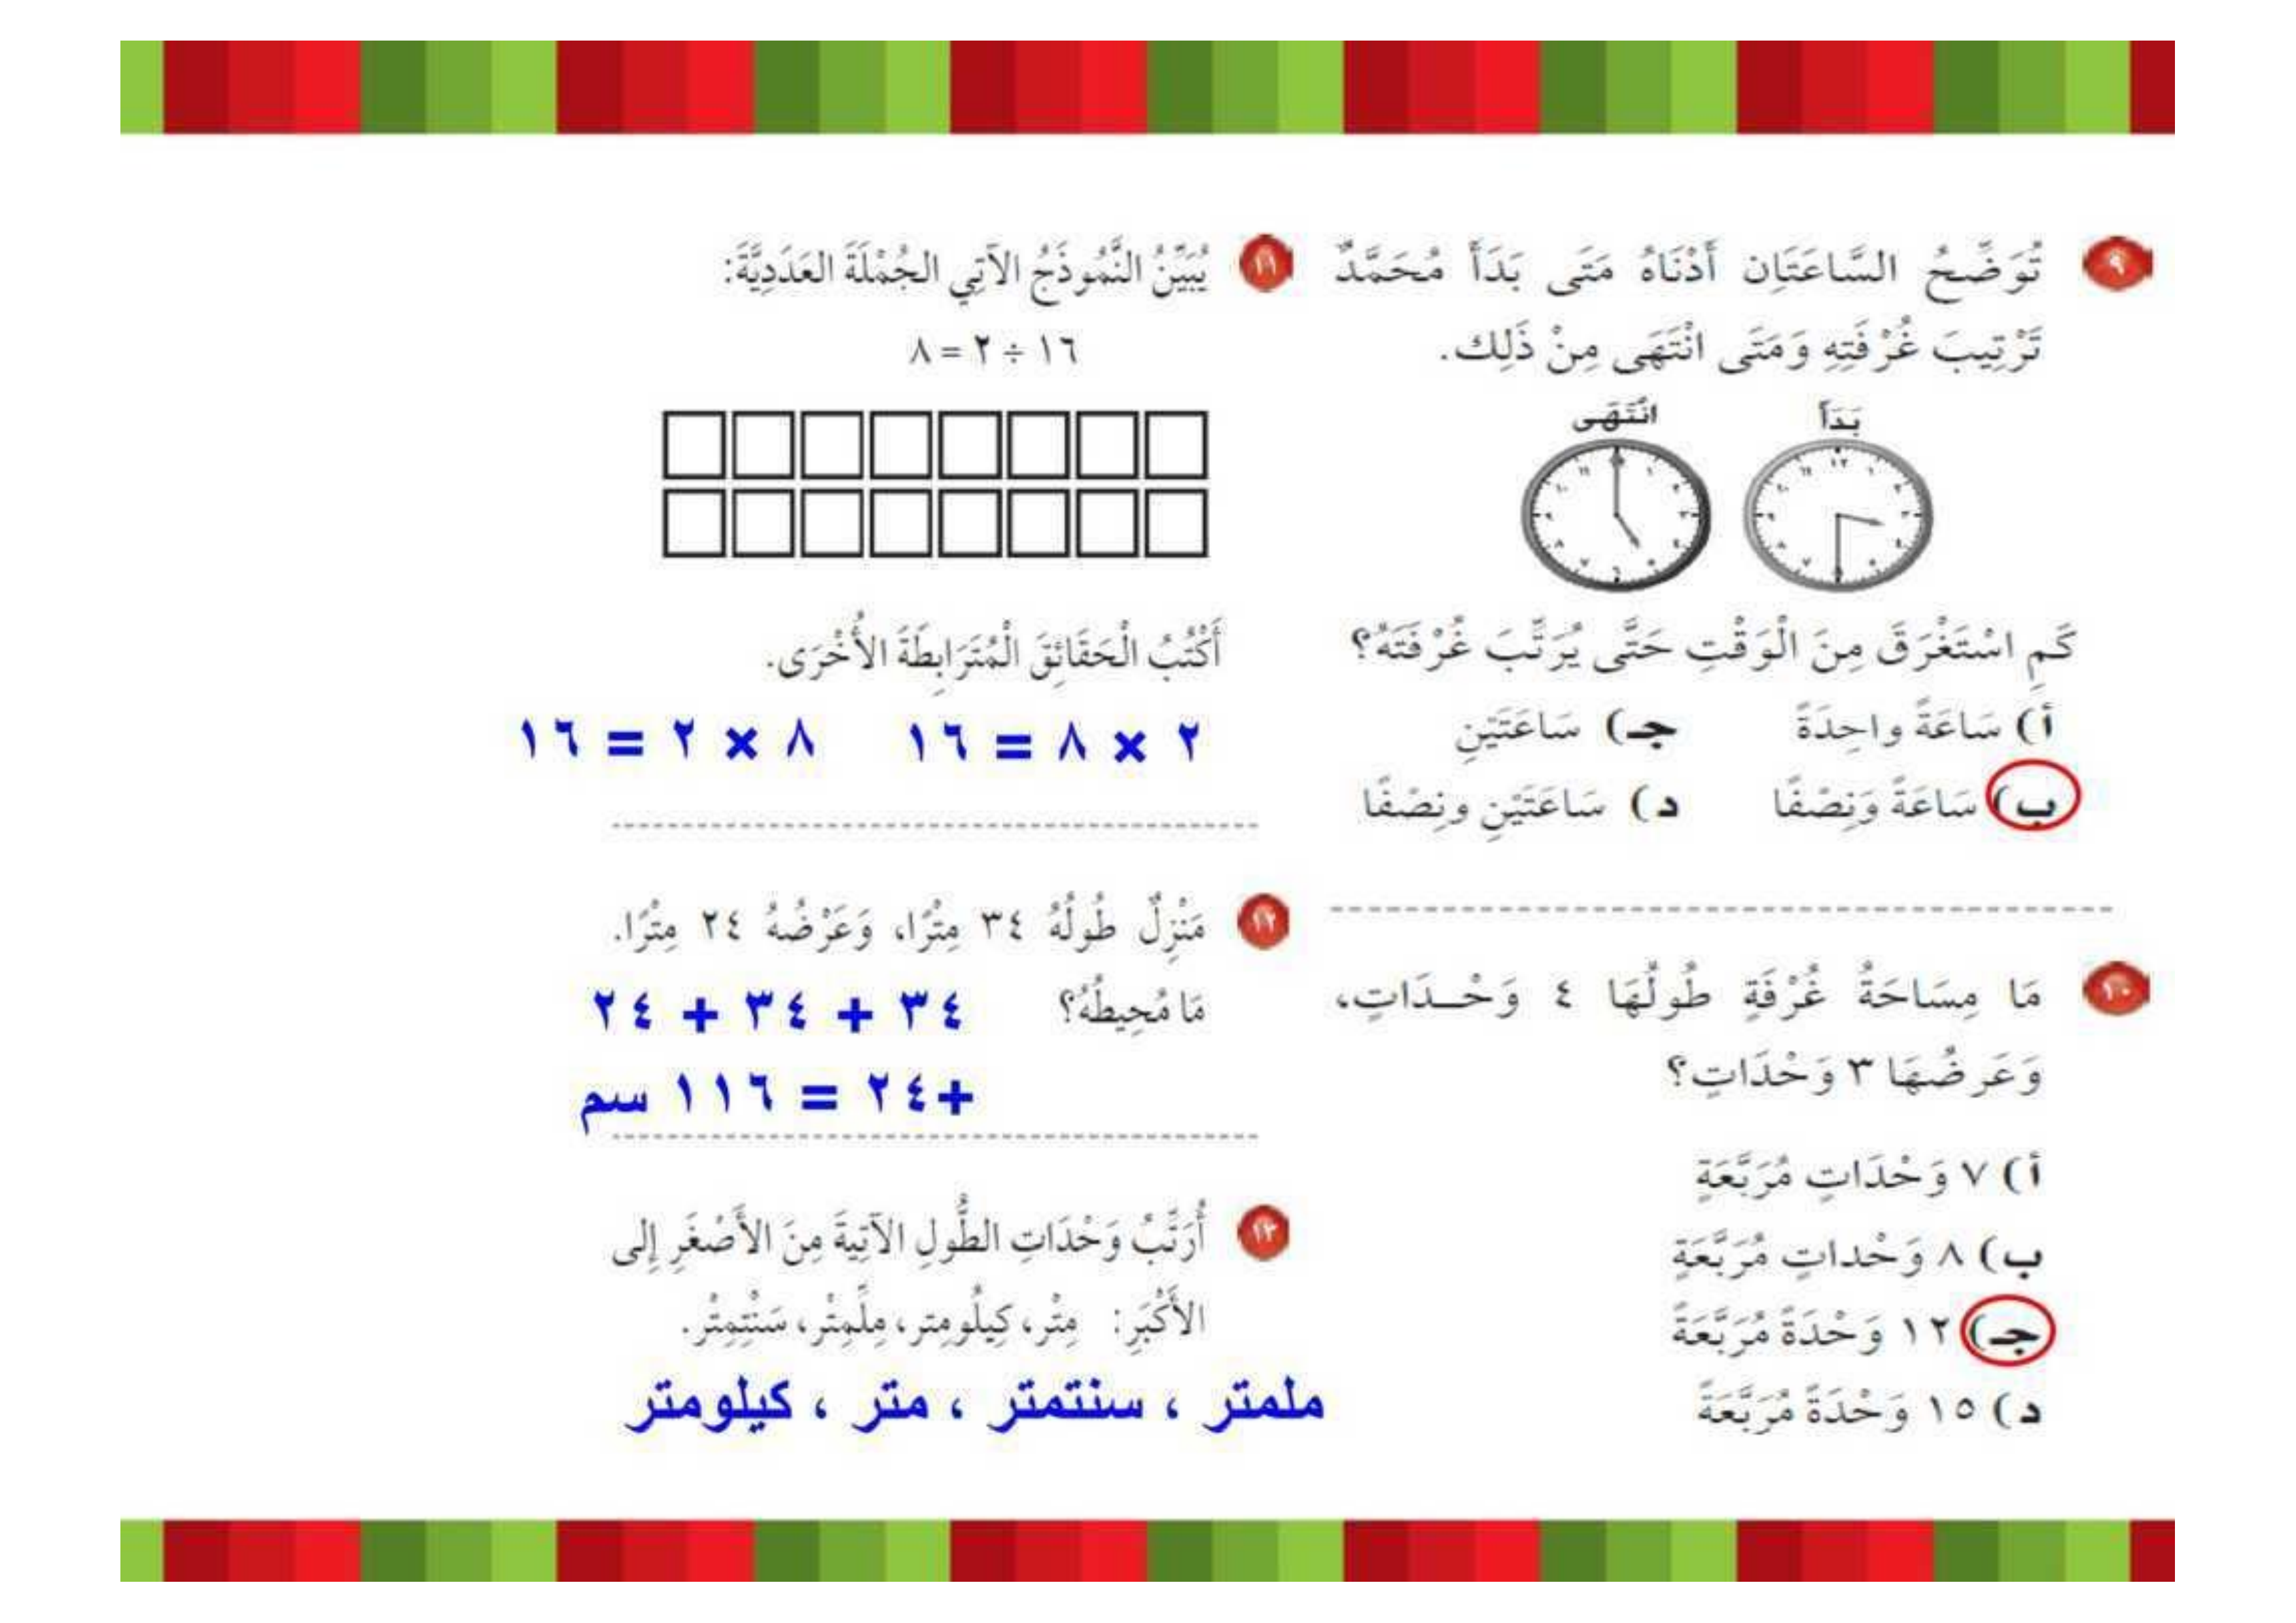 ٩ تُوَضِّحُ السَّاعَتَانِ أَدْنَاهُ مَتَى بَدَأَ مُحَمَّدٌ
تَرْتِيبَ غُرْفَتِهِ وَمَتَى انْتَهَى مِنْ ذَلِك.
بَدَأَ انْتَهَى
كَمِ اسْتَغْرَقَ مِنَ الْوَقْتِ حَتَّى يُرَتِّبَ غُرْفَتَهُ؟
أ) سَاعَةً واحِدَةً جـ) سَاعَتَيْنِ
ب) سَاعَةً وَنِصْفًا د) سَاعَتَيْنِ ونِصْفًا
١٠ مَا مِسَاحَةُ غُرْفَةٍ طُولُهَا ٤ وَحْـدَاتٍ،
وَعَرضُهَا ٣ وَحْدَاتٍ؟
أ) ٧ وَحْدَاتٍ مُرَبَّعَةٍ
ب) ٨ وَحْداتٍ مُرَبَّعَةٍ
جـ) ١٢ وَحْدَةً مُرَبَّعَةً
د) ١٥ وَحْدَةً مُرَبَّعَةً
١١ يُبَيِّنُ النَّمُوذَجُ الآتِي الجُمْلَةَ العَدَدِيَّةَ:
١٦ ÷ ٢ = ٨
أَكْتُبُ الْحَقَائِقَ الْمُتَرَابِطَةَ الأُخْرَى.
٢ × ٨ = ١٦ ٨ × ٢ = ١٦
١٢ مَنْزِلٌ طُولُهُ ٣٤ مِتْرًا، وَعَرْضُهُ ٢٤ مِتْرًا.
مَا مُحِيطُهُ؟ ٣٤ + ٣٤ + ٢٤
+٢٤ = ١١٦ سم
١٣ أُرَتِّبُ وَحْدَاتِ الطُّولِ الآتِيةَ مِنَ الأَصْغَرِ إِلى
الأَكْبَرِ: مِتْر، كِيلُومِتر، مِلِّمِتْر، سَنْتِمِتْر.
ملمتر ، سنتمتر ، متر ، كيلومتر